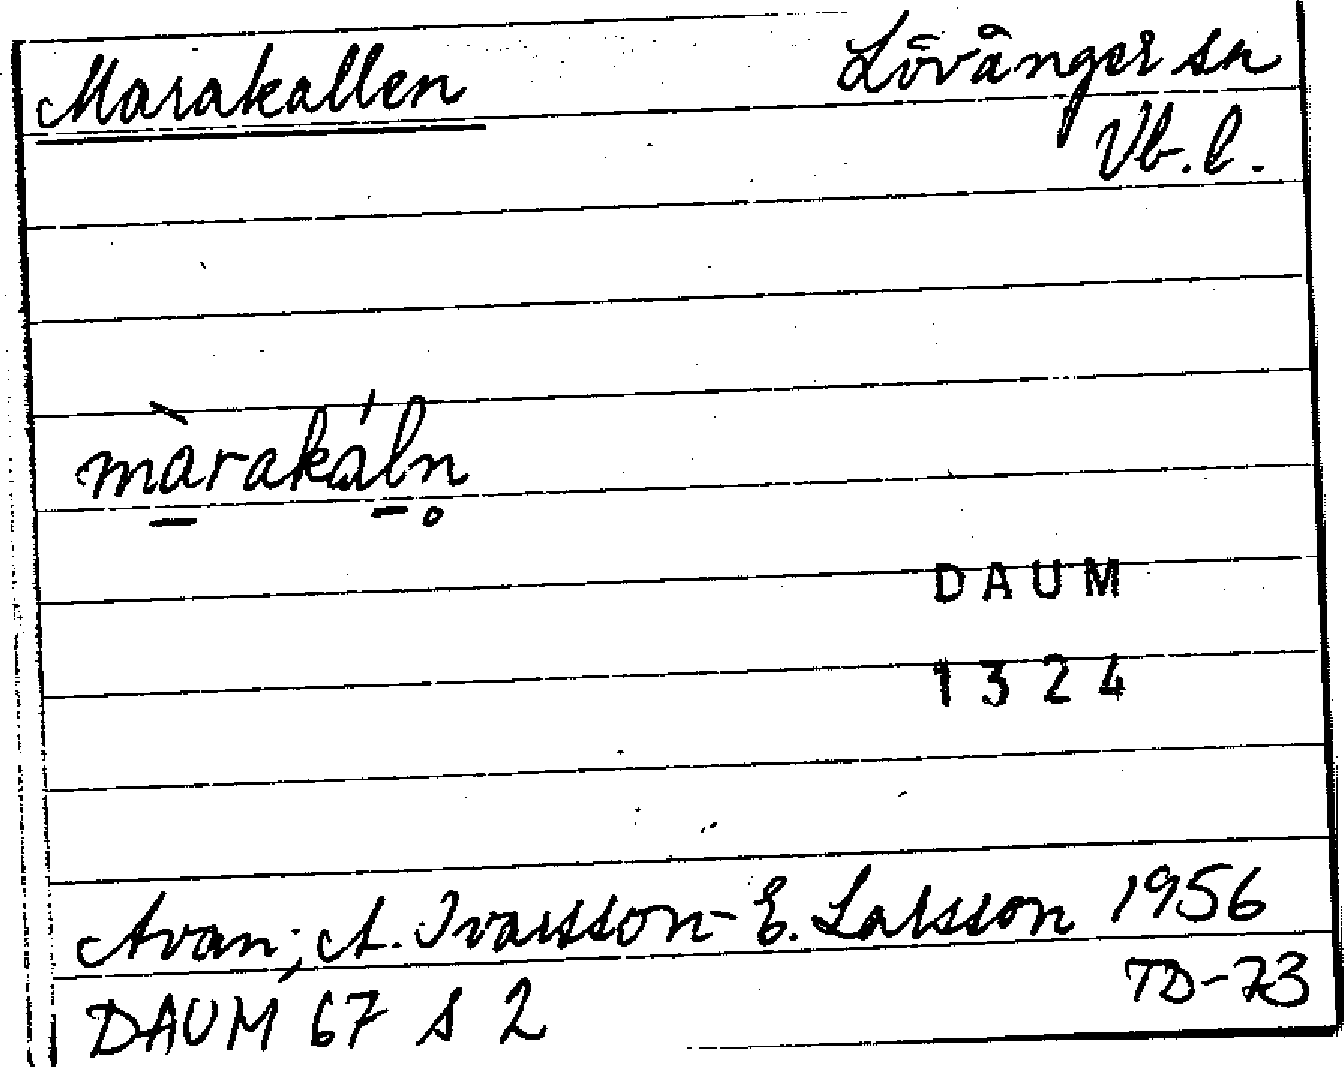 Marakallen Lövånger sn
Vb. l.
màrakáln̥
DAUM
1324
Avan; A. Ivarsson - E. Larsson 1956
DAUM 67 s 2 TD-73